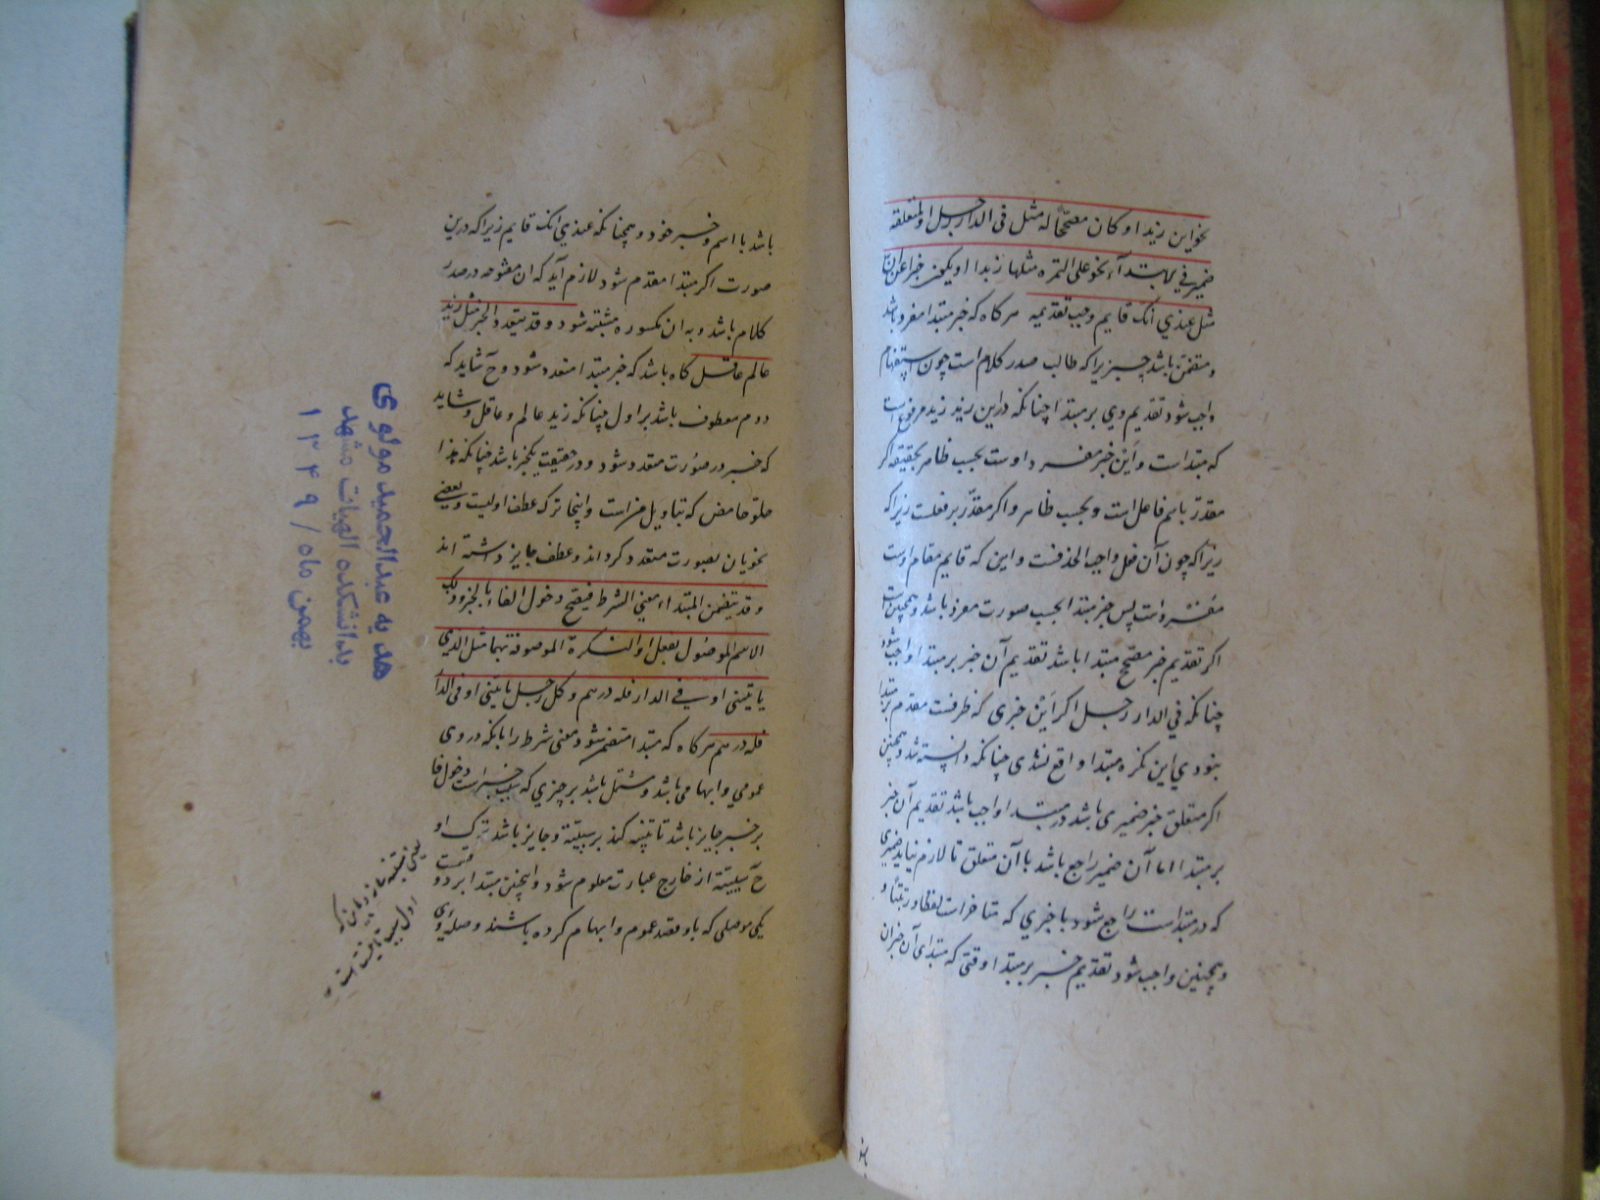 نحو این زید او کان مصححا له مثل فی الدار رجل او لمتعلقه
ضمیر فی المبتدأ نحو علی التمرة مثلها زبدا او یکون خبرا عن ان
مثل عندی انک قایم وجب تقدیمه هرگاه که خبر مبتدا مفرد باشد
و متضمن باشد چیزیرا که طالب صدر کلام است چون استفهام
واجب شود تقدیم وی بر مبتدا چنانکه در این زید زید مرفوع است
که مبتداست و این خبر مفرد اوست بحسب ظاهر بحقیقه اگر
مقدر باسم فاعل است و بحسب ظاهر و اگر مقدر بر فعلست زیرا که
زیرا که چون آن فعل واجب الحذفست و این که قایم مقام اوست
مفسره است پس خبر مبتدا بحسب صورت مفرد باشد و همچنین است
اگر تقدیم خبر مصحح مبتدا باشد تقدیم آن خبر بر مبتدا واجب شود
چنانکه فی الدار رجل اگر این خبری که ظرفست مقدم بر مبتدا
نبودی این نکره مبتدا واقع نشدی چنانکه دانسته شد و همچنین
اگر متعلق خبر ضمیری باشد در مبتدا واجب باشد تقدیم آن خبر
بر مبتدا اما آن ضمیر راجع باشد با آن متعلق تا لازم نیاید ضمیری
که در مبتداست راجع شود با خبری که متاخر است لفظا و رتبتا و
و همچنین واجب شود تقدیم خبر بر مبتدا وقتی که مبتدای آن خبر ان
باشد با اسم و خبر خود و همچنانکه عندی انک قایم زیرا که درین
صورت اگر مبتدا مقدم شود لازم آید که ان مفتوحه در صدر
کلام باشد و به ان مکسوره مشتبه شود و قد یتعدد الخبر مثل زید
عالم عاقل گاه باشد که خبر مبتدا متعدد شود و ح شاید که
دوم معطوف باشد بر اول چنانکه زید عالم و عاقل و شاید
که خبر در صورت متعدد شود و در حقیقت یکخبر باشد چنانکه هذا
حلو حامض که بتاویل مز است و اینجا ترک عطف اولیست و بعضی
نحویان بصورت متعدد کرده اند و عطف جایز داشته اند
و قد یتضمن المبتدا معنی الشرط فیصح دخول الفاء بالخبر و ذلک
الاسم الموصول بفعل او النکرة الموصوفة بهما مثل الذی
یاتینی او فی الدار فله درهم و کل رجل یاتینی او فی الدار
فله درهم هرگاه که مبتدا متضمن شود معنی شرط را بانکه در وی
عمومی و ابهامی باشد و مشتمل باشد بر چیزی که سبب خبر است دخول فا
بر خبر جایز باشد تا تنبیه کند بر سببیت و جایز باشد ترک او
ح سببیت از خارج عبارت معلوم شود و اینچنین مبتدا بر دو قسمت
یکی موصولی که باو قصد عموم و ابهام کرده باشند و صله وی
هدیه به عبدالحمید مولوی
بدانشکده الهیات مشهد
بهمن ماه / ۱۳۴۹